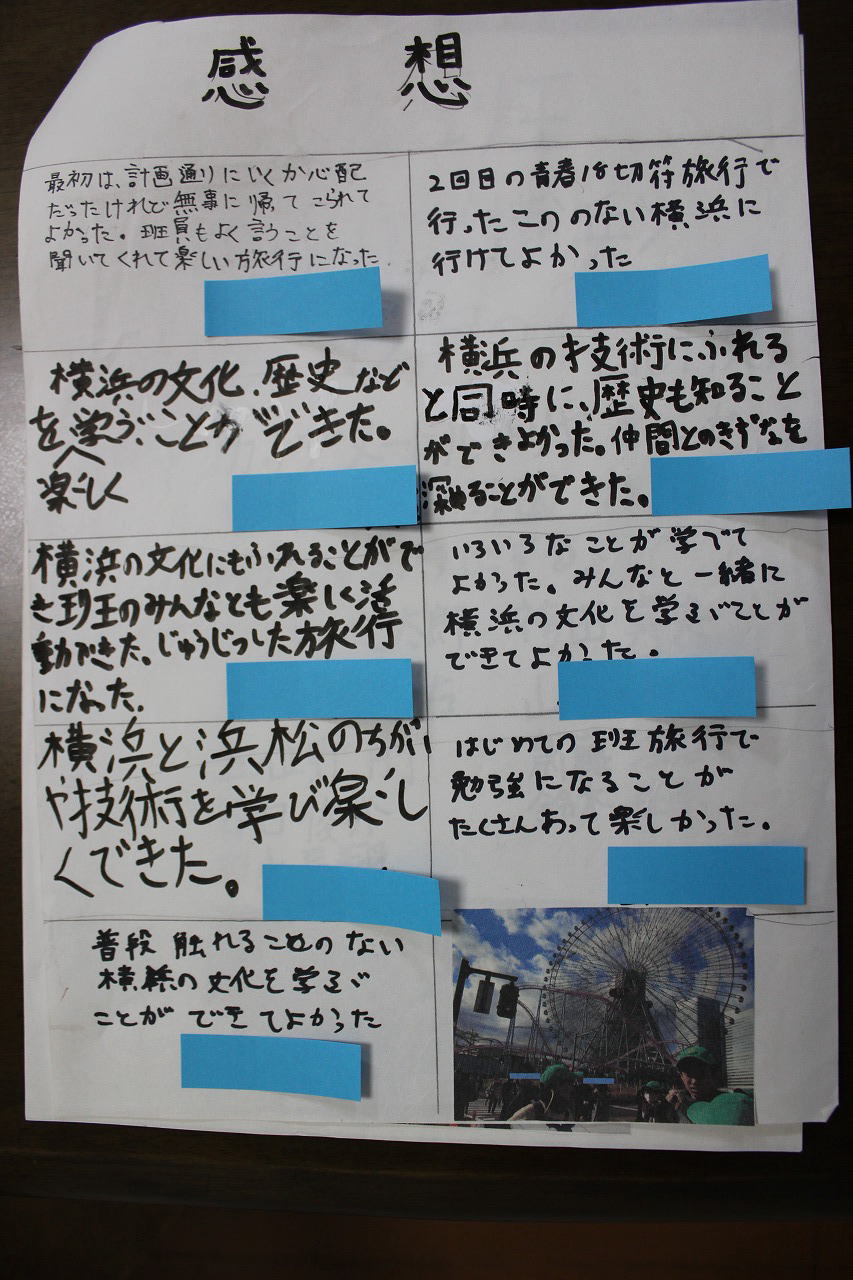 感想
最初は、計画通りにいくか心配
だったけれど無事に帰てこられて
よかった。班員もよく言うことを
聞いてくれて楽しい旅行になった.
2回目の青春18切符旅行で
行ったこののない横浜に
行けてよかった
横浜の文化、歴史など
を学ぶことができた。
楽しく
横浜の技術にふれる
と同時に、歴史も知ること
ができよかった。仲間とのきずなを
深めることができた。
横浜の文化にもふれることがで
き班のみんなとも楽しく活
動ができた。じゅうじつした旅行
になった.
いろいろなことが学べて
よかった。みんなと一緒に
横浜の文化を学ぶことが
できてよかった.
横浜と浜松のちがい
や技術を学び楽し
くできた。
はじめての班旅行で
勉強になることが
たくさんあって楽しかった。
普段触れることのない
横浜の文化を学ぶ
ことができてよかった